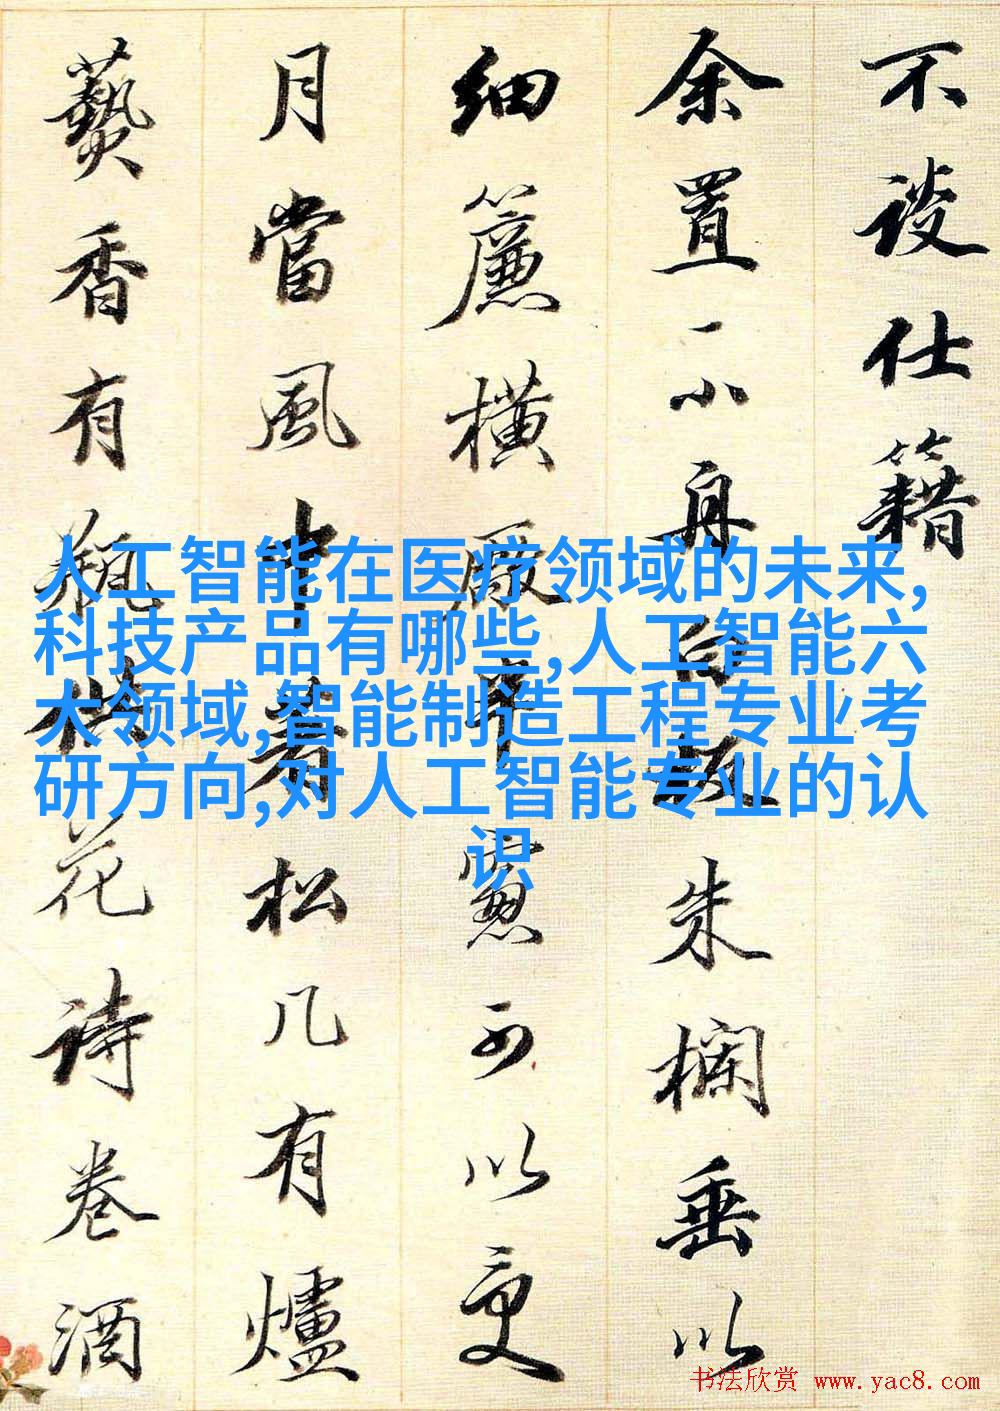 不談仕籍
余置一小舟白板朱欄垂以
細簾橫厰窓可以受
月當風中着松几有爐
爇香有瓶花詩卷酒
人工智能在医疗领域的未来,
科技产品有哪些,人工智能六
大领域,智能制造工程专业考
研方向,对人工智能专业的认
识
书法欣赏 www.yac8.com